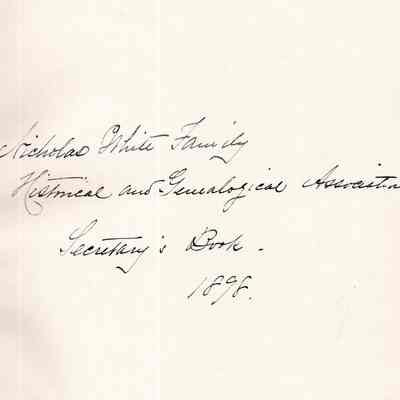 Nicholas White Family
Historical and Genealogical Association
Secretary's Book.
1898.